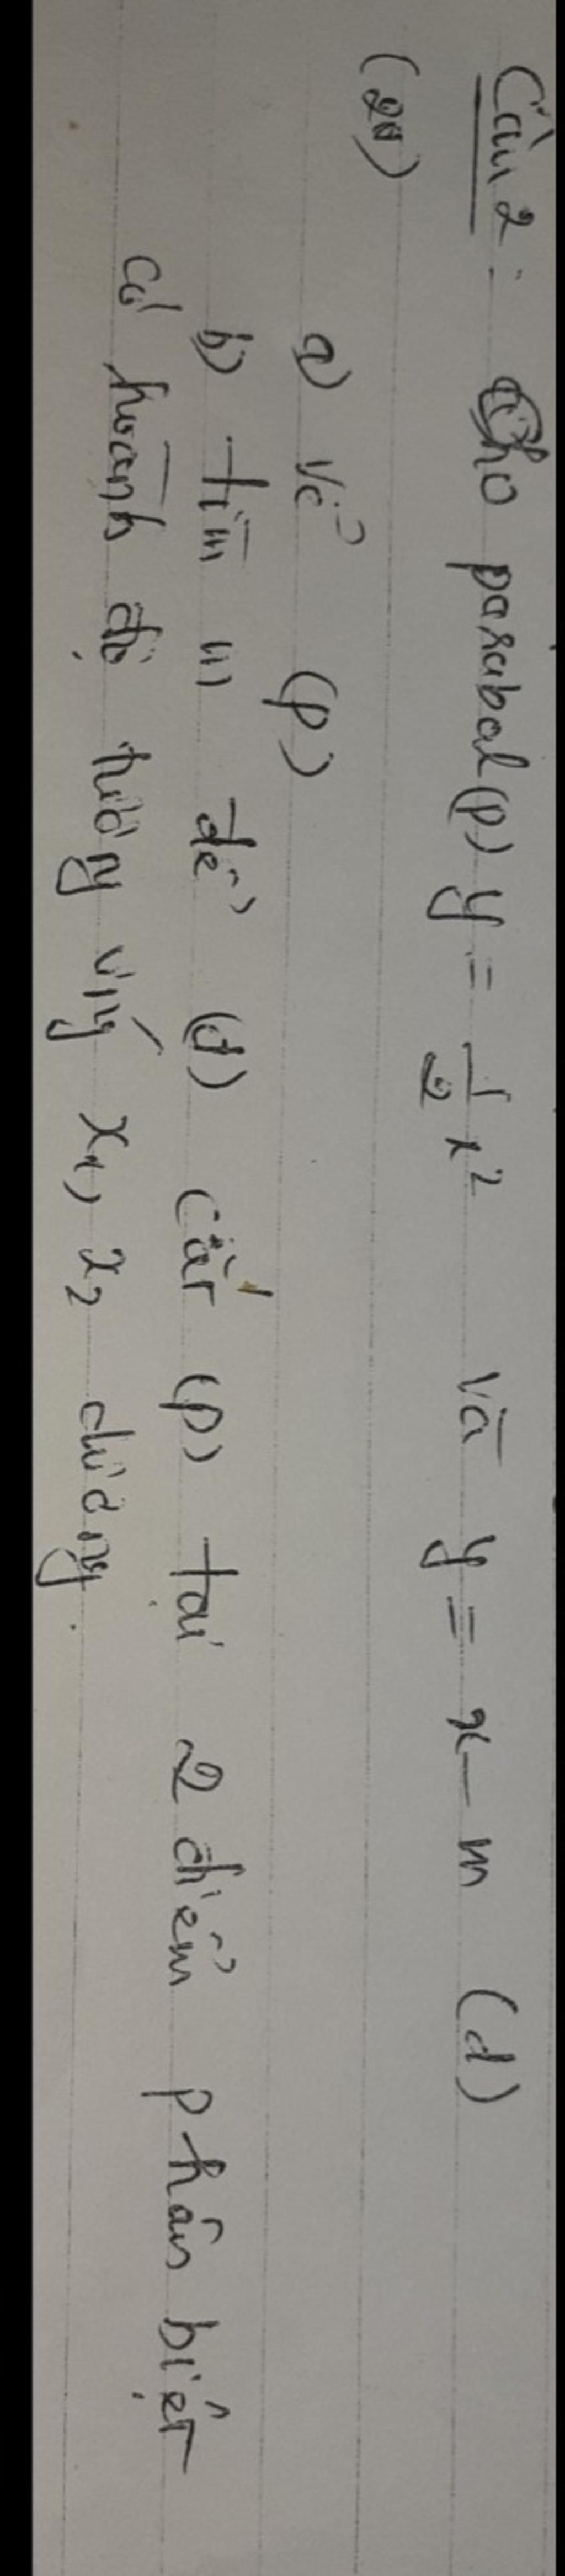 Câu 2: Cho parabol (P) y = 1/2 x² và y = x - m (d)
(2đ)
a) Vẽ (P)
b) tìm m để (d) cắt (P) tại 2 điểm phân biệt
có hoành độ tương ứng x₁, x₂ dương.